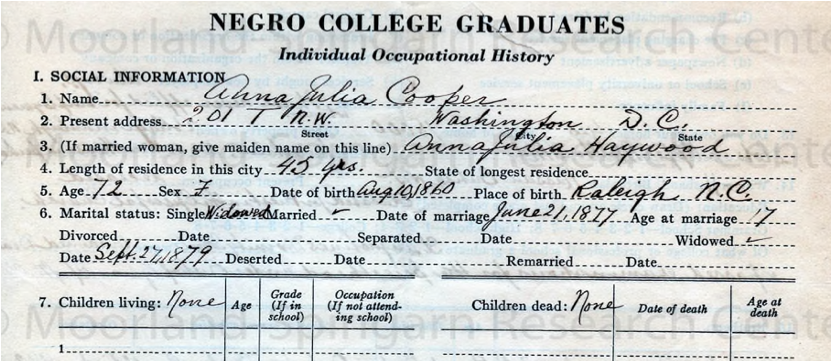 NEGRO COLLEGE GRADUATES
Individual Occupational History
I. SOCIAL INFORMATION
1. Name Anna Julia Cooper
2. Present address 201 T N.W. Washington D.C.
Street City State
3. (If married woman, give maiden name on this line) Anna Julia Haywood
4. Length of residence in this city 45 yrs. State of longest residence
5. Age 72 Sex F. Date of birth Aug 10, 1860 Place of birth Raleigh, N.C.
6. Marital status: Single Widowed Married ✓ Date of marriage June 21, 1877 Age at marriage 17
Divorced Date Separated Date Widowed ✓
Date Sept. 27, 1879 Deserted Date Remarried Date
7. Children living: None Age Grade (If in school) Occupation (If not attending school) Children dead: None Date of death Age at death
1
© Moorland-Spingarn Research Cente